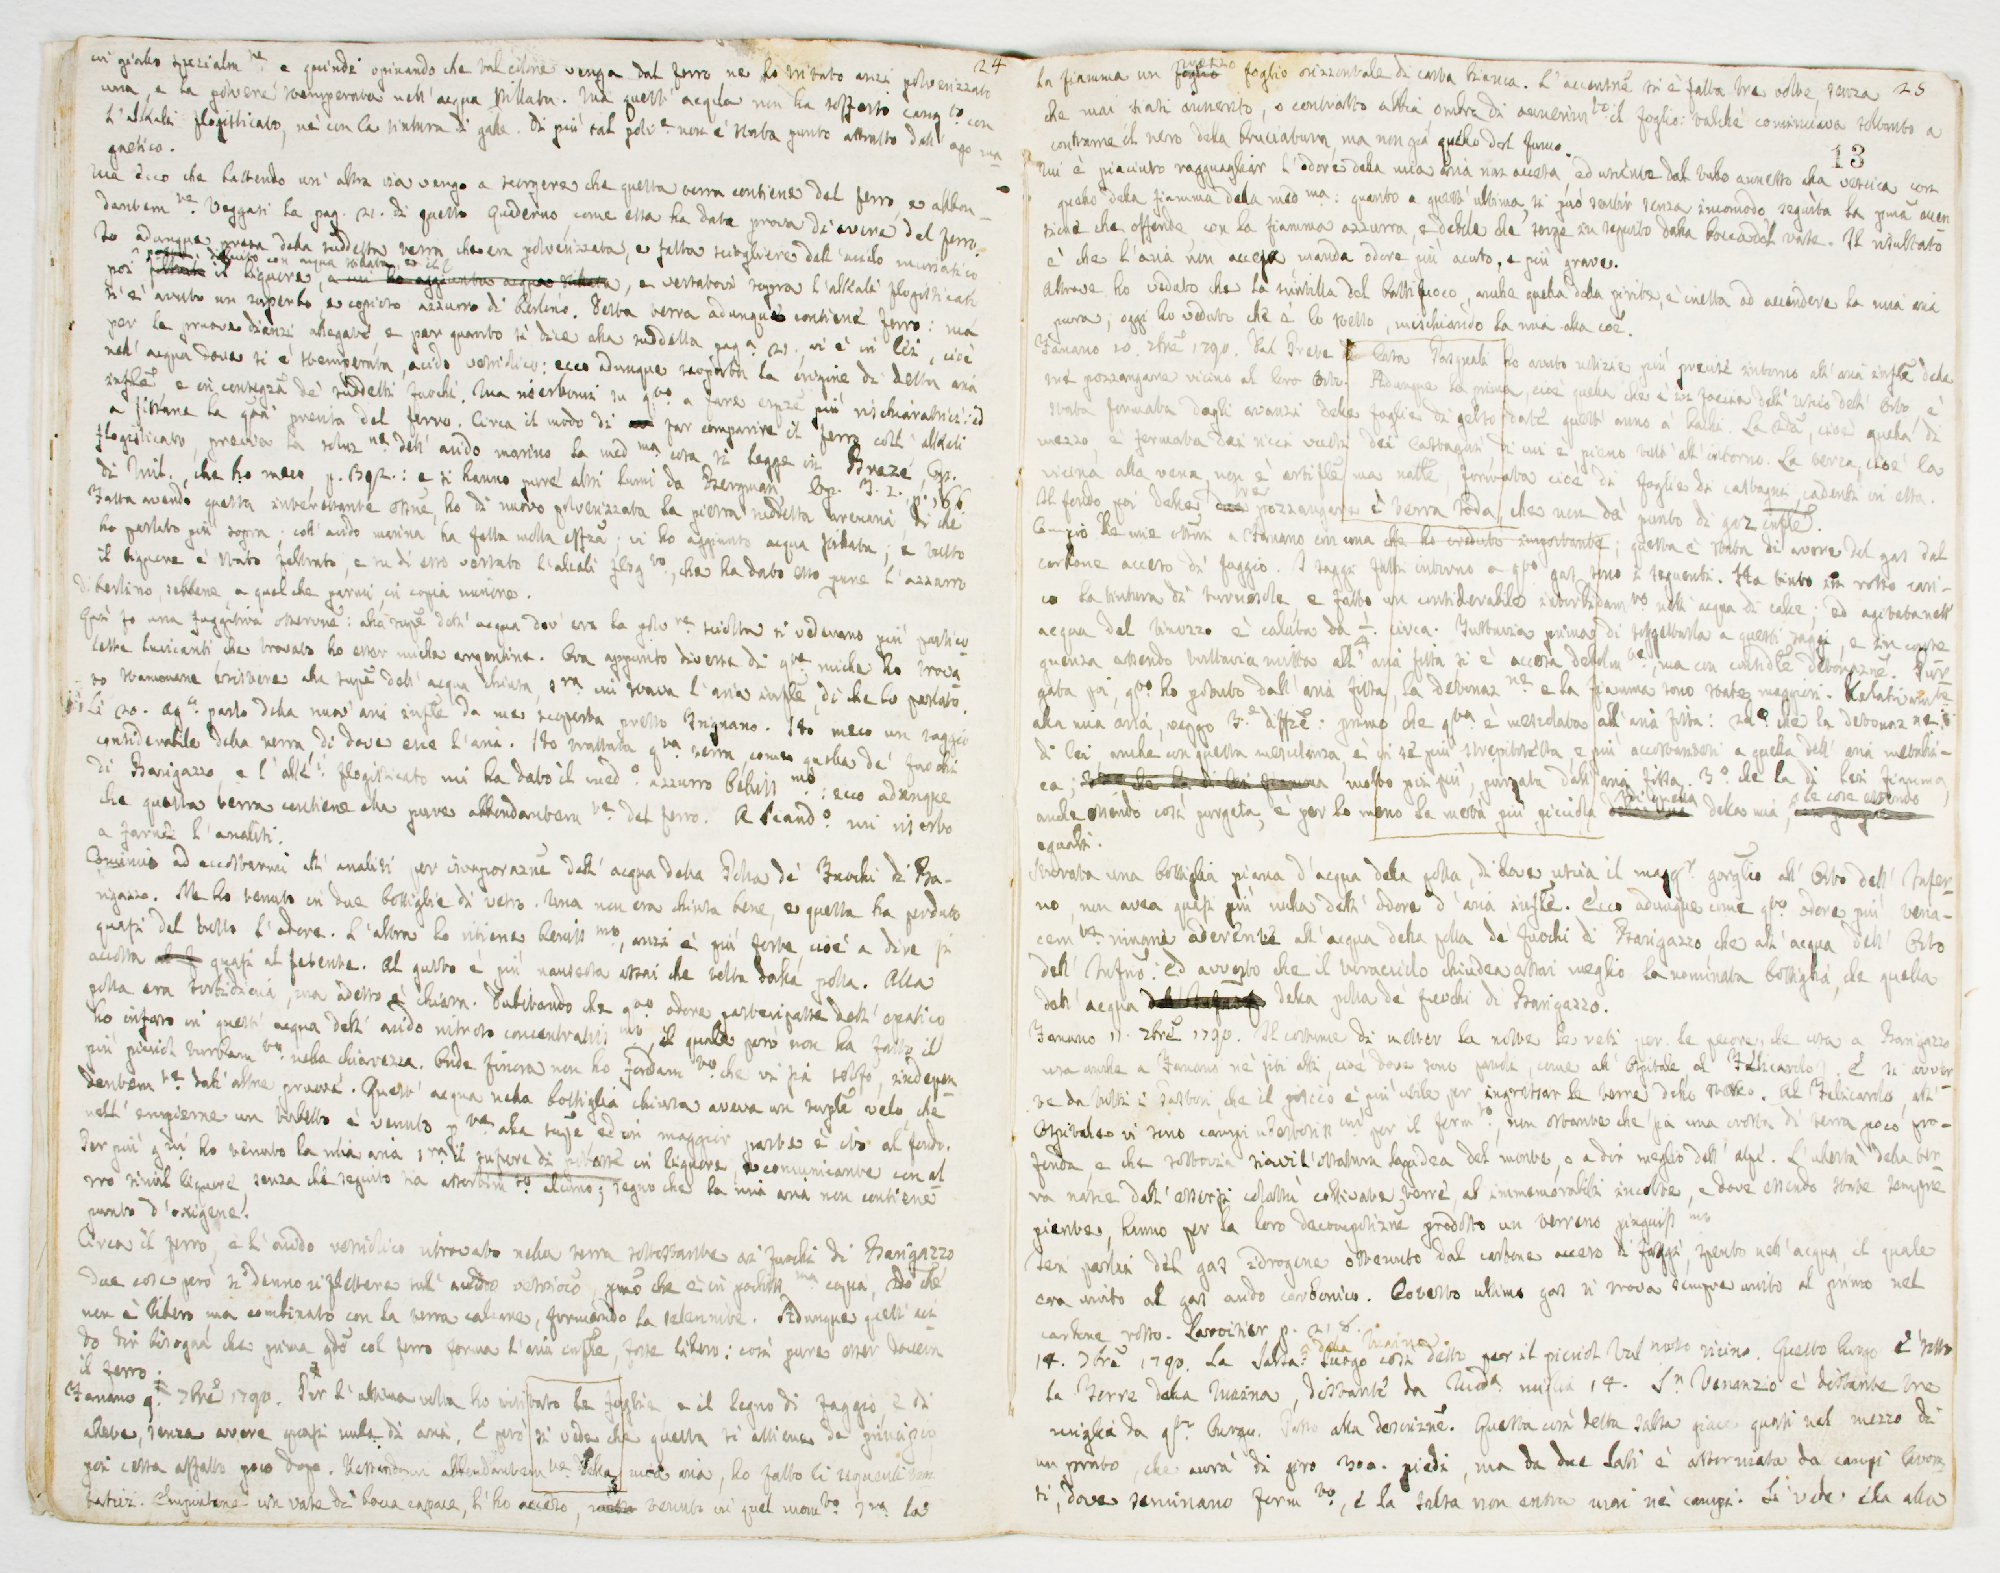 24
in giallo spezialm.te e quindi opinando che tal colore venga dal ferro ne ho tritato anzi polverizzato
una, e la polvere stemperata nell'acqua stillata. Ma quest'acqua non ha sofferto cang.to con
l'alkali flogisticato, nè con la tintura di gale. Di più tal polv.e non è stata punto attratta dall'ago ma
gnetico.
Ma ecco che battendo un'altra via vengo a scorgere che questa terra contiene del ferro e abbon-
dantem.te. Veggasi la pag. 21. di questo Quaderno, come essa ha date prova di avere del ferro.
Ho adunque presa della suddetta terra che era polverizzata, e fatta sciogliere dall'acido muriatico
poi il liquore, e versatovi sopra l'alkali flogisticato
si è avuto un superbo, e copioso azzurro di Berlino. Detta terra adunque contiene ferro: ma
per le pruove dianzi allegate e per quanto si dice alla suddetta pag.a 21., vi è in lei, cioè
nell'acqua dove si è stemperata, acido vetriolico: ecco adunque scoperta la origine di detta aria
infle e in consegza de' suddetti fuochi. Ma riserbomi su q.to a fare espze più rischiaratrici: ed
a fissare la qtà precisa del ferro. Circa il modo di far comparire il ferro coll'alkali
flogisticato, previa la soluz.ne dell'acido marino la med.ma cosa si legge in Breze, Op.
di Mil., che ho meco, p. 392.: e si hanno pure altri lumi da Bergman, Op. T. 2. p. 166
Fatta avendo questa interessante ossne, ho di nuovo polverizzata la pietra suddetta arenaria di che
ho parlato più sopra; coll'acido marino ha fatta molta effza; vi ho aggiunto acqua stillata; e tutto
il liquore è stato feltrato, e su di esso versato l'alcali flog.to, che ha dato esso pure l'azzurro
di Berlino, sebbene, a quel che parmi, in copia minore.
Qui fo una fuggitiva osservne: alla supfe dell'acqua dov'era la polv.re sciolta si vedevano più partico
lette luccicanti che trovato ho esser miche argentine. Ora appunto diverse di q.te miche ho trova
to stamane esistere alla supfe dell'acqua chiusa, s.ra cui stava l'aria infle, di che ho parlato.
Li 20. ag.to parlo della nuova aria infle da me scoperta presso Frignano. Ho meco un saggio
considerabile della terra di dove esce l'aria. Ho trattata q.ta terra come quella de' fuochi
di Barigazzo e l'alk.i flogisticato mi ha dato il med.o azzurro belliss.mo: ecco adunque
che questa terra contiene ella pure abbondantem.te del ferro. A Scand.o mi riserbo
a farne l'analisi.
Comincio ad accostarmi all'analisi per isvaporazne dell'acqua della Polla de' Fuochi di Ba-
rigazzo. Ne ho tenuto in due bottiglie di vetro. Una non era chiusa bene, e questa ha perduto
quasi del tutto l'odore. L'altra lo ritiene beniss.mo, anzi è più forte, cioè a dire si
accosta quasi al fetente. Al gusto è più nauseosa assai che tolta dalla polla. Alla
polla era torbidiccia, ma adesso è chiara. Dubitando che q.to odore partecipasse dell'epatico
ho infuso in quest'acqua dell'acido nitroso concentratiss.mo, il quale però non ha fatto il
più picciol turbam.to nella chiarezza. Onde finora non ho fondam.to che vi sia solfo, indepen
dentem.te dall'altre pruove. Quest'acqua nella bottiglia chiusa aveva un supfle velo che
nell'empierne un tubetto è venuto p.te alla supfe ed in maggior parte è ito al fondo.
Per più g.ni ho tenuto la mia aria s.ra il zupore di potasse in liquore, e comunicante con al
tro simil liquore, senza che seguito sia assorbim.to alcuno; segno che la mia aria non contiene
punto d'oxigene.
Circa il ferro, e l'acido vetriolico ritrovato nella terra sottostante ai fuochi di Barigazzo
due cose però si denno riflettere sull'acido vetriolico, pmo che è in pochiss.ma copia, 2do che
non è libero ma combinato con la terra calcare, formando la selenite. Adunque quest'aci
do fin bisogna che prima qdo col ferro forma l'aria infle, fosse libero: così pure esser doveva
il ferro.
Fanano 9. 7bre 1790. Per l'ultima volta ho visitato le foglie e il legno di faggio, e di
abete, senza avere quasi nulla di aria. E però si vede che questa si ottiene da principio
poi cessa affatto poco dopo. abbondantem.te della mia aria, ho fatto li seguenti ten
tativi. Empiutone un vase di bocca capace, l'ho acceso, tenuto in quel mom.to s.ra la
25
13
la fiamma un mezzo foglio orizzontale di carta bianca. L'accensne si è fatta tre volte, senza
che mai siasi annerito, o contratto abbia ombra di annerim.to il foglio: talchè cominciava soltanto a
contrarre il nero della bruciatura, ma non già quello del fumo.
Mi è piaciuto ragguagliar l'odore della mia aria non accesa ed uscente dal tubo annesso alla vescica con
quello della fiamma della med.ma: quanto a quest'ultima, si può sentir senza incomodo seguita la pma accen
sione che offende, con la fiamma azzurra, e debole che sorge in seguito dalla bocca del vase. Il risultato
è che l'aria non accesa manda odore più acuto, e più grave.
Altrove ho veduto che la scintilla del battifuoco, anche quella della pirite, è inetta ad accendere la mia aria
pura; oggi ho veduto che è lo stesso, mischiando la mia alla coe.
Fanano 10 7bre 1790. Dal Prete di Casa Pasquali ho avuto notizie più precise intorno all'aria infle delle
tre pozzangare vicino al loro Orto. Adunque la prima, cioè quella che è in faccia dell'uscio dell'Orto, è
stata formata dagli avanzi delle foglie di gelso date quest'anno a' bachi. La 2da, cioè quella di
mezzo è formata dai ricci vecchi dei Castagni di cui è pieno tutt'all'intorno. La terza, cioè la
vicina alla vena, non è artifle ma natle, formata cioè di foglie di castagni, cadenti in essa.
Al fondo poi delle tre pozzangare è terra soda, che non dà punto di gaz infle.
Compiò le mie ossni a Fanano con una che ho creduto importante; questa è stata di avere del gas dal
carbone acceso di faggio. I saggi fatti intorno a q.to gas sono i seguenti. Ha tinto in rosso cari-
co la tintura di turnesole, e fatto un considerabile intorbidam.to nell'acqua di calce; ed agitata nell'
acqua del tinozzo è calata da 1/4. circa. Tuttavia prima di sottometterla a questi saggi, e in conse
guenza essendo tuttavia mista all'aria fissa si è accesa debolm.te, ma con sensible detonazne. Pur
gata poi, q.to ho potuto dall'aria fissa, la detonaz.ne e la fiamma sono state maggiori. Relativam.te
alla mia aria, veggo 3.e diffze: primo che q.ta è mescolata all'aria fissa: 2do che la detonaz.ne
di lei anche con questa mescolanza è in sè più strepitosetta, e più accostantesi a quella dell'aria metalli-
ca; molto poi più, purgata dall'aria fissa. 3.o che la di lei fiamma,
anche essendo così purgata, è per lo meno la metà più picciola di quella della mia, le cose essendo
eguali.
Sturata una bottiglia piena d'acqua della polla, di dove usciva il magg.r gorgoglio all'Orto dell'Infer-
no, non avea quasi più nulla dell'odore d'aria infle. Ecco adunque come q.to odore più tena-
cem.te rimane aderente all'acqua della polla de' fuochi di Barigazzo che all'acqua dell'Orto
dell'Infno. Ed avverto che il turacciolo chiudea assai meglio la nominata bottiglia, che quella
dell'acqua della polla de' fuochi di Barigazzo.
Fanano 11. 7bre 1790. Il costume di metter la notte le reti per le pecore, che usa a Barigazzo
usa anche a Fanano ne' siti alti, cioè dove sono, come all'Ospitale al Felicarolo. E si avver
te da tutti i Pastori che il piscio è più utile per ingrassar le terre dello sterco. Al Felicarolo all'
Ospitale vi sono campi ubertosiss.mi per il form.to, non ostante che sia una crosta di terra poco pro-
fonda e che sottovia siavi l'ossatura lapidea del monte, o a dir meglio dell'alpi. L'ubertà della ter
ra nasce dall'essersi colassù coltivate terre, ab immemorabili incolte, e dove essendo state sempre
piante, hanno per la loro decompotizne prodotto un terreno pinguiss.mo
Sen parlai del gas idrogene ottenuto dal carbone acceso di faggi, spento nell'acqua, il quale
era unito al gas acido carbonico. Cotesto ultimo gas si trova sempre unito al primo nel
carbone rosso. Lavoisier p. 218.
14. 7bre 1790. La Salsa della Maina luogo così detto per il picciol vicino. Questo luogo è sotto
la Torre della Maina, distante da Mod.a miglia 14. S.n Venanzio è distante tre
miglia da q.to luogo. Posso alla descrizne. Questa così detta salsa giace quasi nel mezzo di
un prato, che avrà di giro 300. piedi, ma da due lati è attorniata da campi lavora
ti, dove seminano form.to, e la salsa non entra mai ne' campi. Si vede ella alla